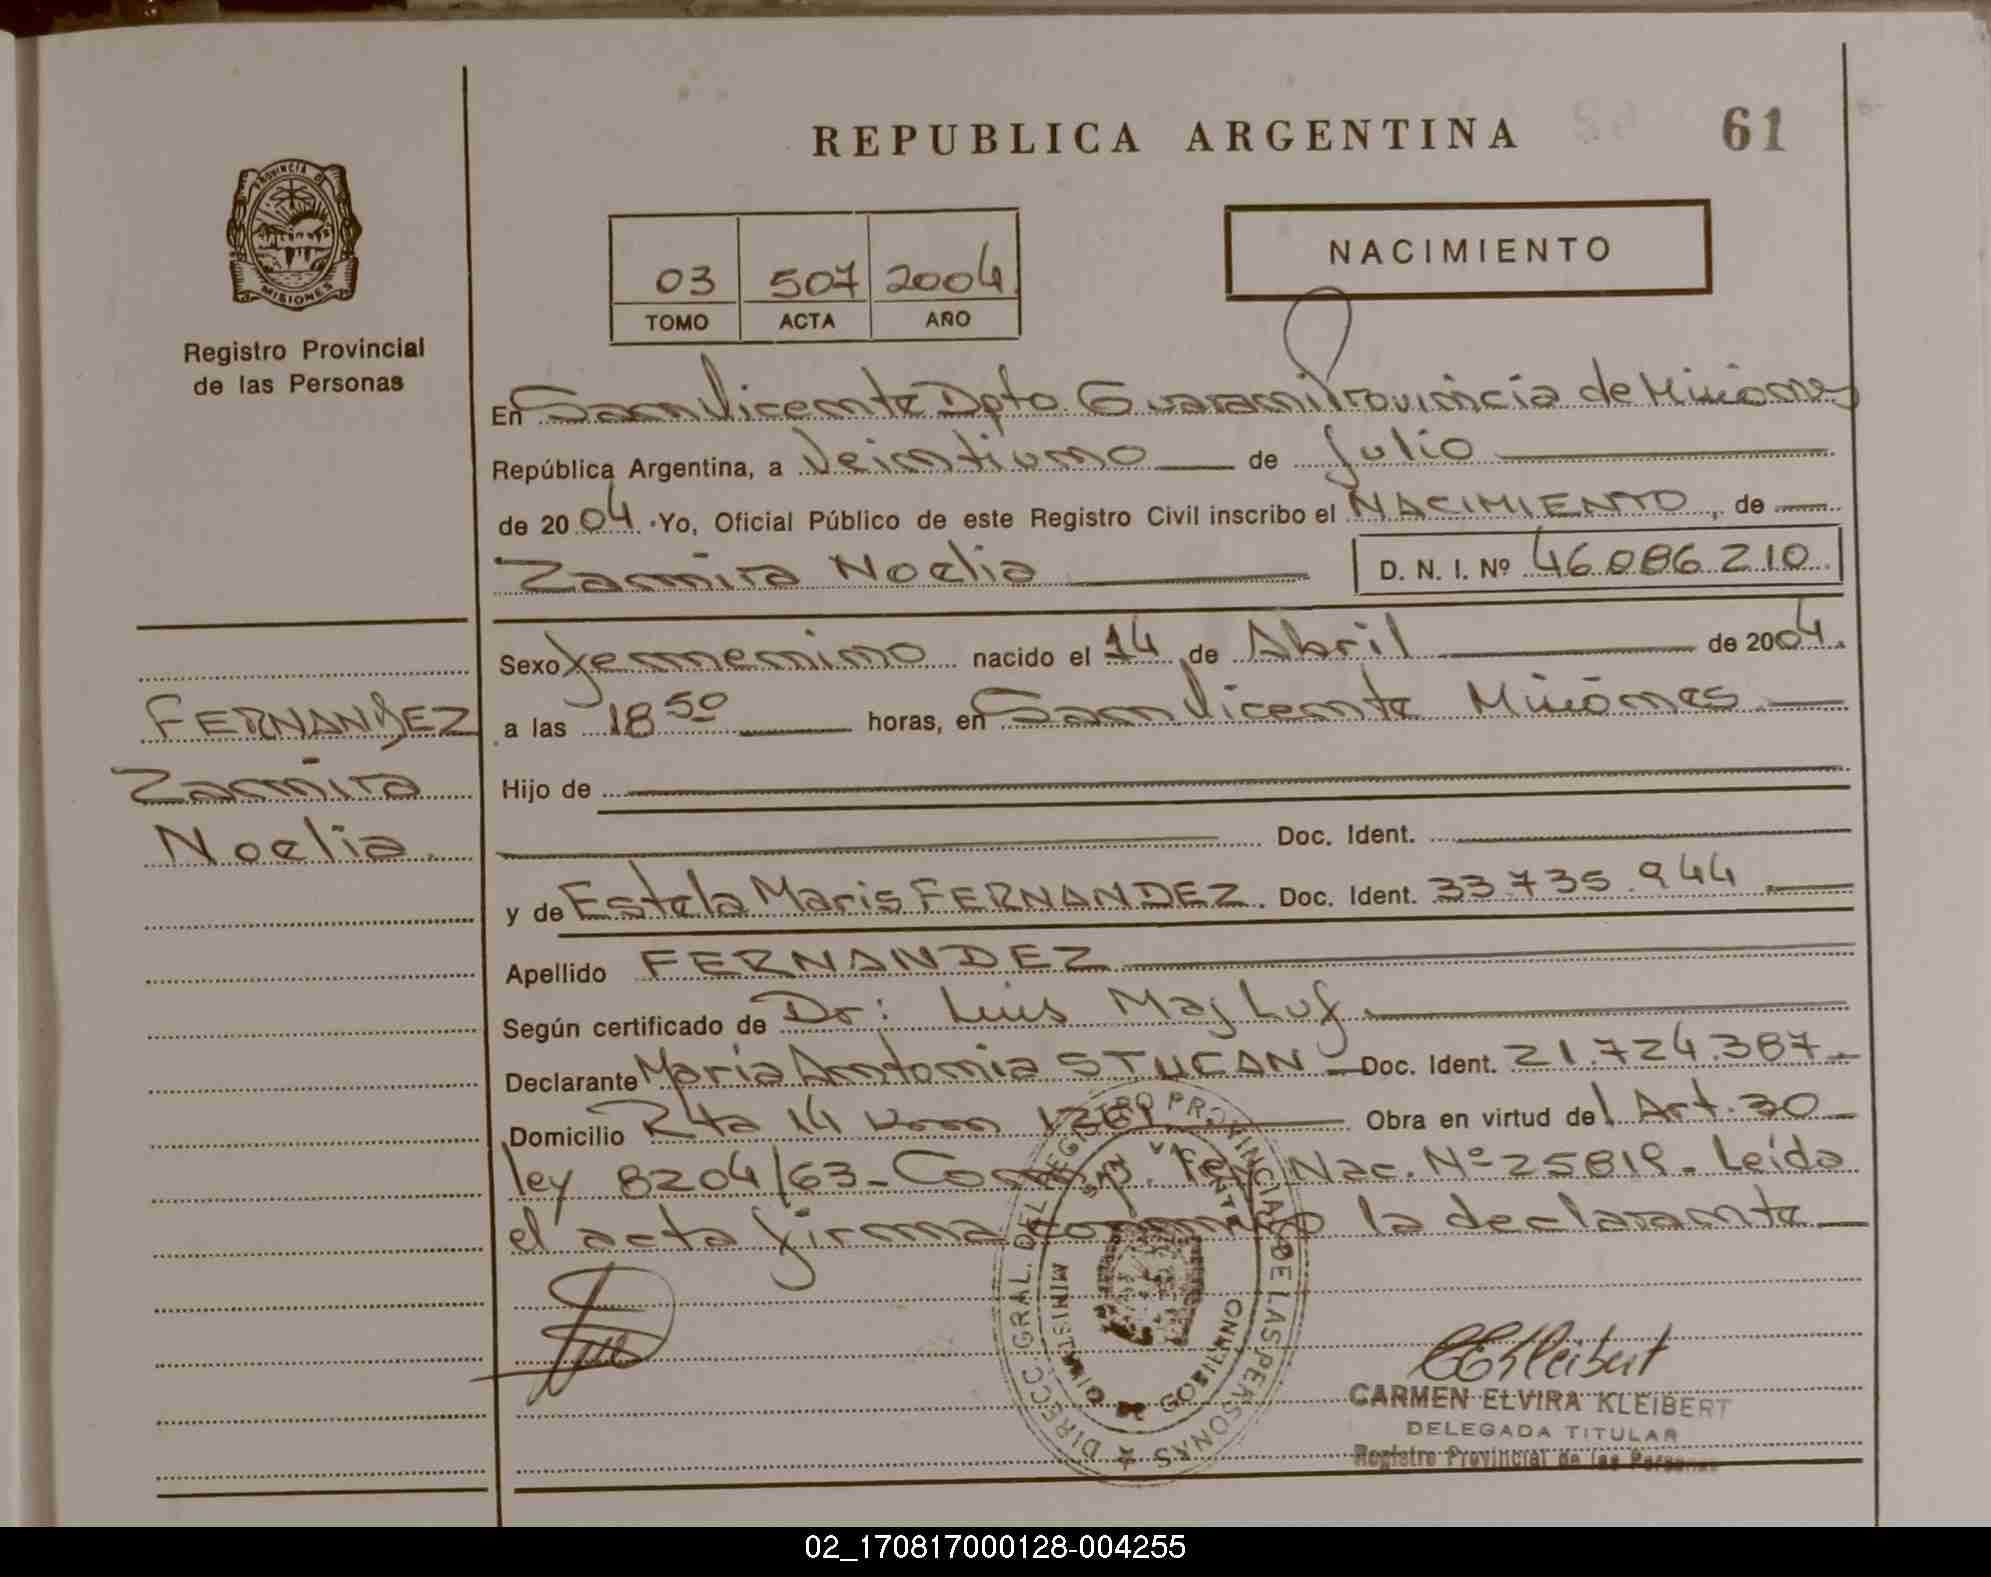 REPUBLICA ARGENTINA
61
PROVINCIA DE
MISIONES
Registro Provincial
de las Personas
03 507 2004
TOMO ACTA AÑO
NACIMIENTO
En San Vicente Dpto. Guarani Provincia de Misiones
República Argentina, a Veintiuno de Julio
de 2004. Yo, Oficial Público de este Registro Civil inscribo el NACIMIENTO, de
Zamira Noelia
D. N. I. Nº 46.086.210
FERNANDEZ
Zamira
Noelia.
Sexo femenino nacido el 14 de Abril de 2004.
a las 18 50 horas, en San Vicente Misiones
Hijo de
Doc. Ident.
y de Estela Maris FERNANDEZ. Doc. Ident. 33.735.944
Apellido FERNANDEZ
Según certificado de Dr: Luis MajLuf
Declarante Maria Antonia STUCAN Doc. Ident. 21.724.387
Domicilio Rta 14 Km 1261 Obra en virtud del Art. 30
ley 8204/63- Nac. Nº 25819. Leída
el acta firma conmigo la declarante
DIRECC. GRAL. DEL REGISTRO PROVINCIAL DE LAS PERSONAS
MINISTERIO DE GOBIERNO
SAN VICENTE MISIONES
CEKleibert
CARMEN ELVIRA KLEIBERT
DELEGADA TITULAR
Registro Provincial de las Personas
02_170817000128-004255